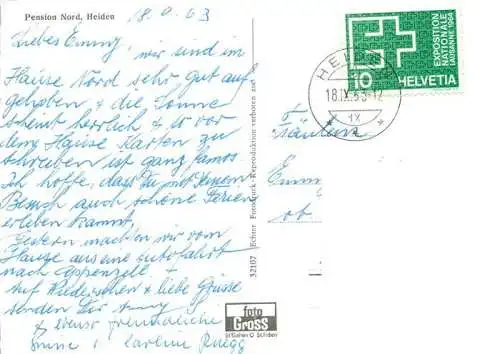 Pension Nord, Heiden
18.9.63
Liebes Emmy, wir sind im
Hause Nord sehr gut auf-
gehoben & die Sonne
scheint herrlich & so vor
dem Hause Karten zu
schreiben ist ganz famos.
Ich hoffe, dass Du mit Deinem
Besuch auch schöne Ferien
erleben kannst.
Gestern machten wir vom
Hause aus eine Autofahrt
nach Appenzell.
Auf Wiedersehen & liebe Grüsse
senden Dir
& ebenso freundliche
32107 Echner Fotodruck-Reproduktion verboten
foto
Gross
St Gallen
HELVETIA
10
EXPOSITION
NATIONALE
LAUSANNE 1964
HEIDEN
18.IX.63-12
Fräulein
Emm
ob